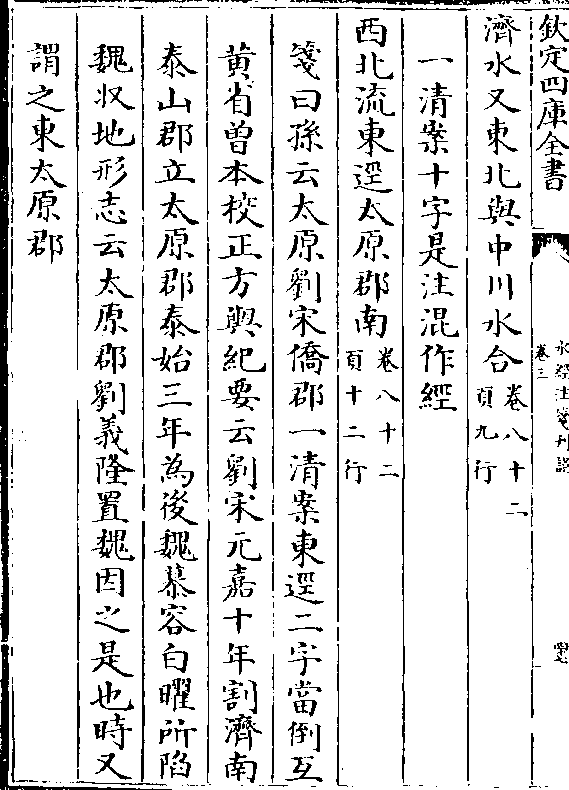 欽定四庫全書
水經注箋刊誤
卷三
濟水又東北與中川水合卷八十二
頁九行
一清案十字是注混作經
西北流東逕太原郡南卷八十二
頁十二行
箋曰孫云太原劉宋僑郡一清案東逕二字當倒互
黄省曾本校正方輿紀要云劉宋元嘉十年割濟南
泰山郡立太原郡泰始三年為後魏慕容白曜所陷
魏収地形志云太原郡劉義隆置魏因之是也時又
謂之東太原郡